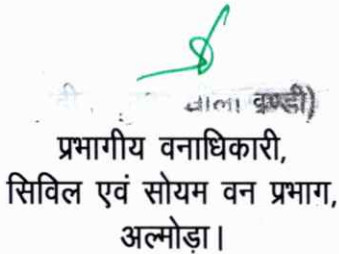 बाला ब्रण्डी)
प्रभागीय वनाधिकारी,
सिविल एवं सोयम वन प्रभाग,
अल्मोड़ा।